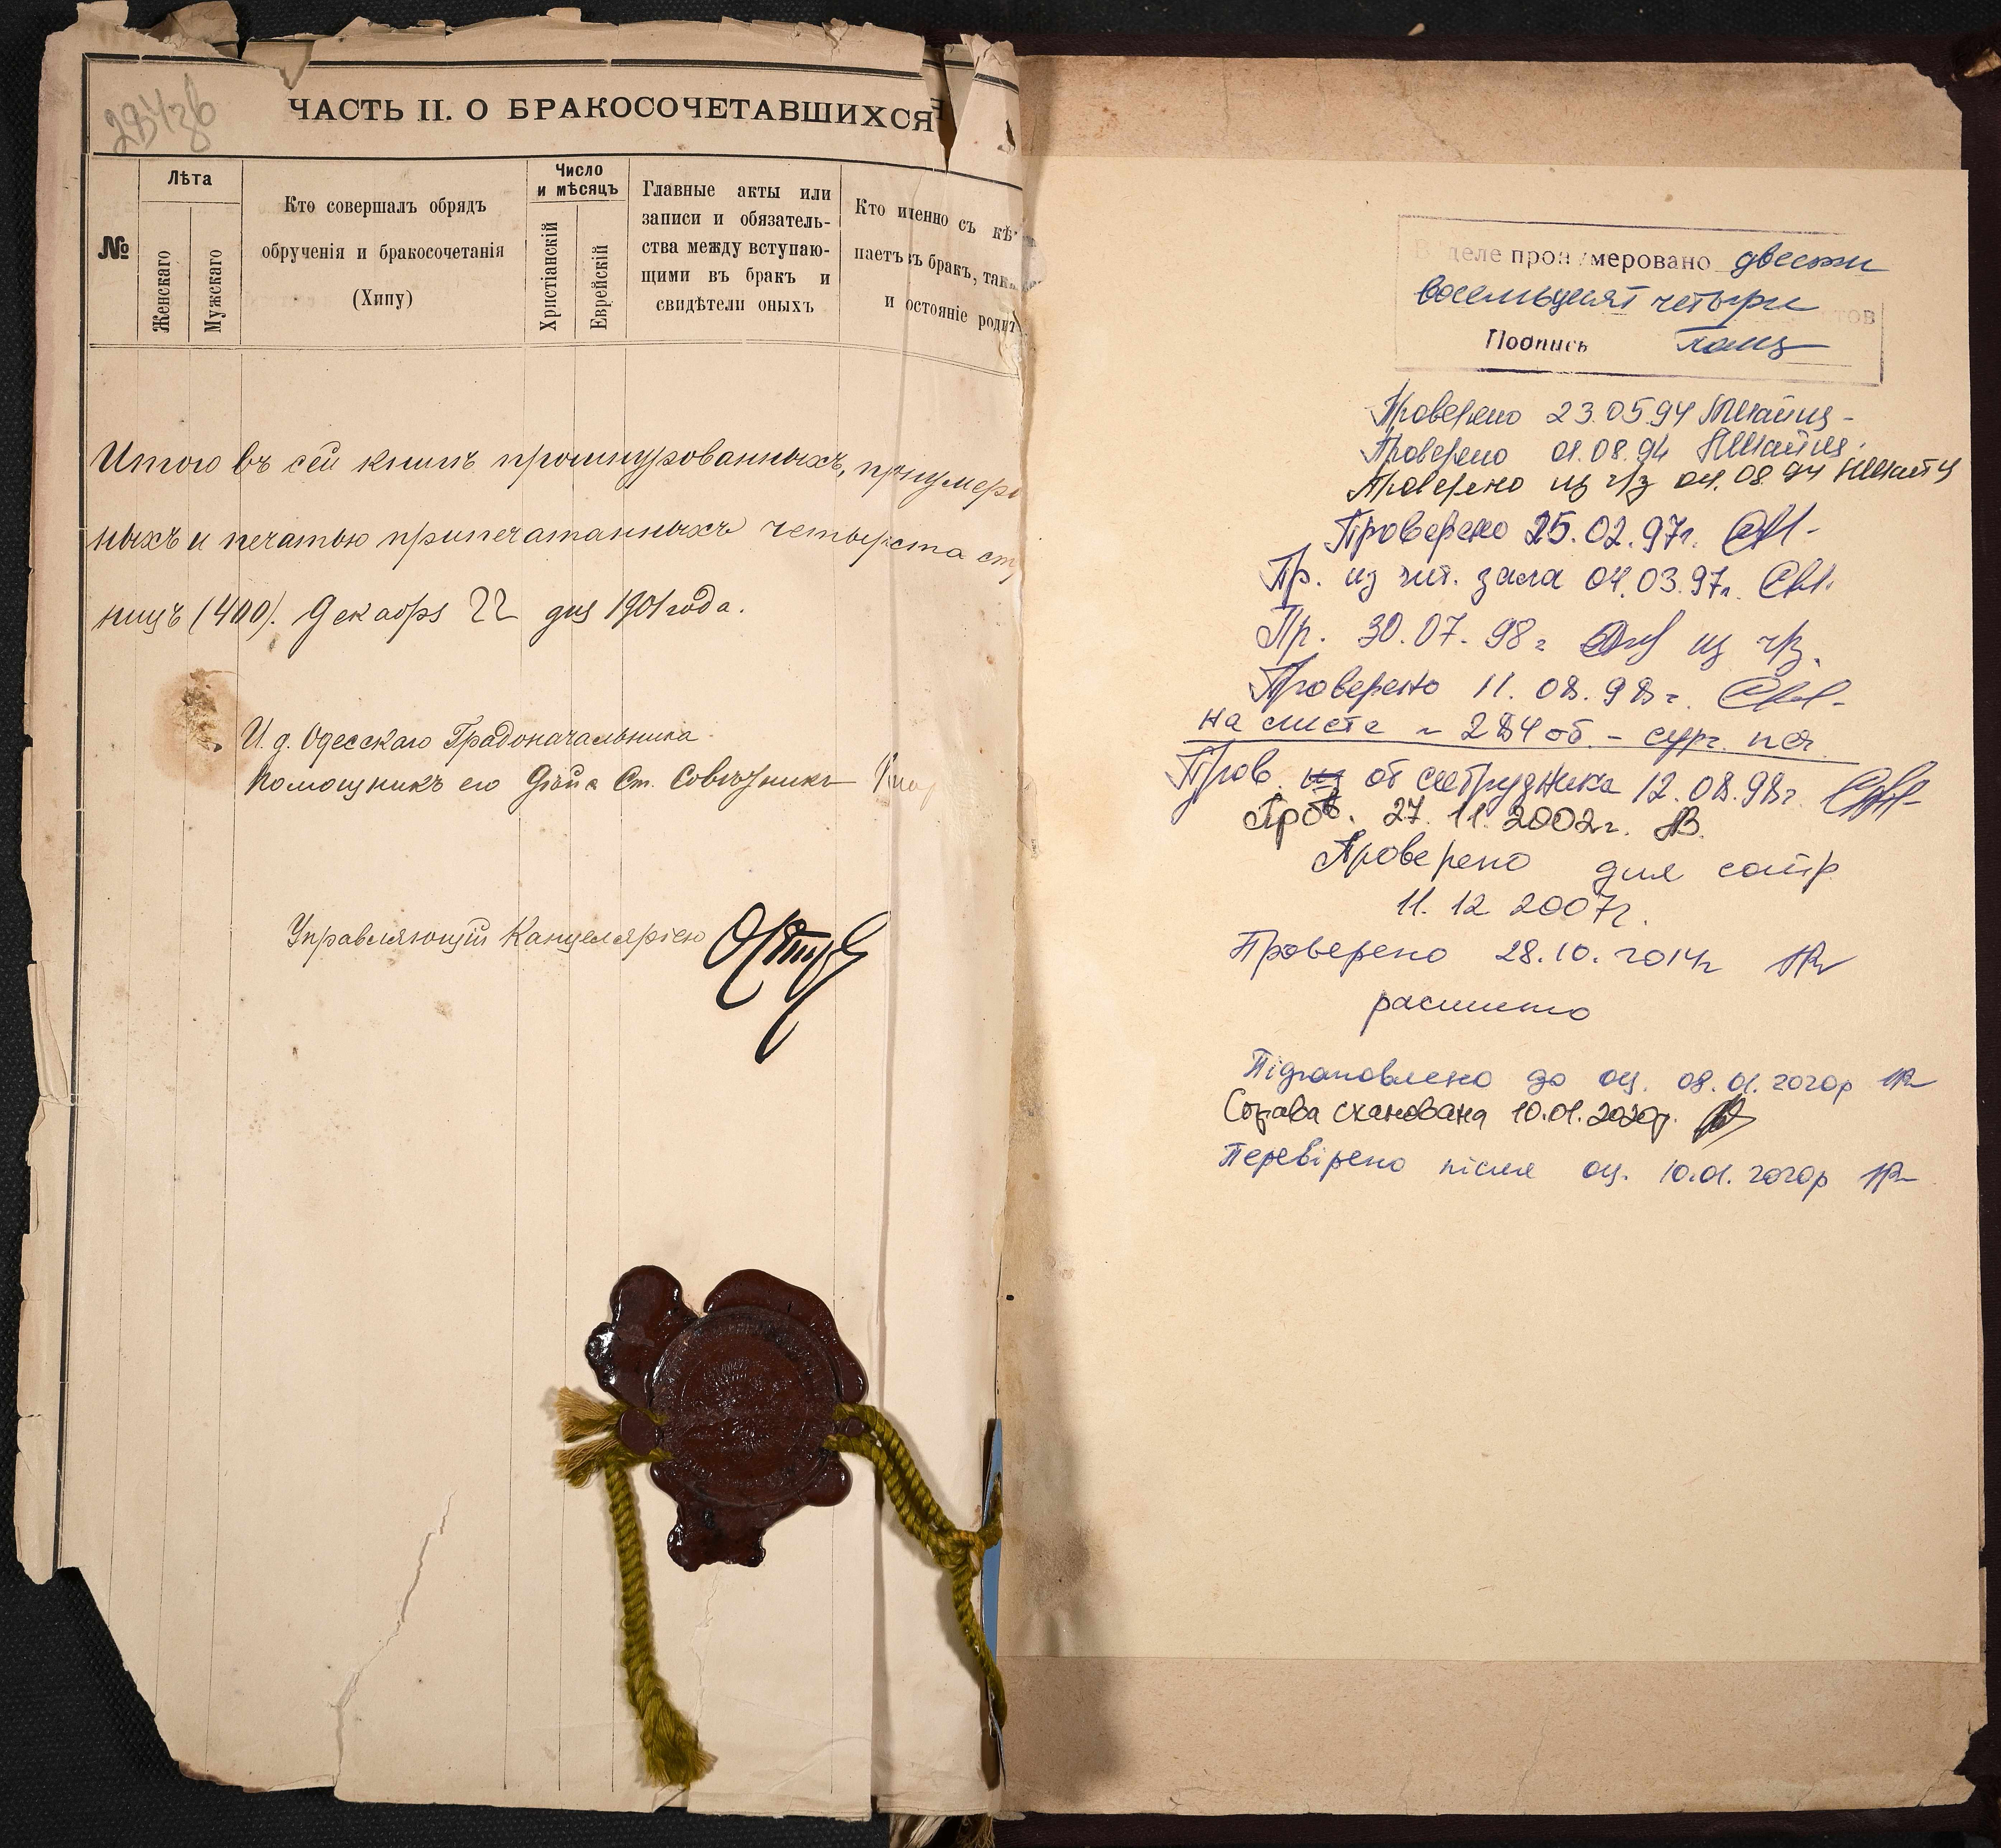 284зв
ЧАСТЬ II. О БРАКОСОЧЕТАВШИХСЯ
№
Лѣта
Женскаго
Мужскаго
Кто совершалъ обрядъ
обрученія и бракосочетанія
(Хипу)
Число
и мѣсяцъ
Христіанскій
Еврейскій
Главные акты или
записи и обязатель-
ства между вступаю-
щими въ бракъ и
свидѣтели оныхъ
Кто именно съ кѣ
паетъ въ бракъ, так
и состояніе родит
Итого въ сей книгѣ прошнурованныхъ, пронумеро
ныхъ и печатью припечатанныхъ четыреста стр
ницъ (400). Декабря 22 дня 1901 года.
И. д. Одесскаго Градоначальника
Помощникъ его Дѣйс. Ст. Совѣтникъ
Управляющій Канцеляріею
В деле пронумеровано двести
восемьдесят четыре
тов
Подпись
Проверено 23.05.94
Проверено 01.08.94
Проверено из ч/з 04.08.94
Проверено 25.02.97г.
Пр. из чит. зала 04.03.97г.
Пр. 30.07.98г из ч/з.
Проверено 11.08.98г.
на листе ~ 284об. - сург. печ.
Пров. от сотрудника 12.08.98г.
Пров. 27.11.2002г.
Проверено для сотр
11.12 2007г.
Проверено 28.10.2014г
расшито
Підготовлено до оц. 08.01.2020р
Справа сканована 10.01.2020р.
Перевірено після оц. 10.01.2020р